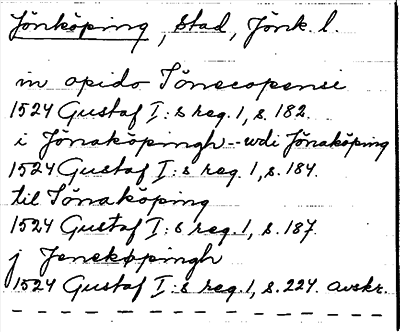 Jönköping, stad, Jönk. l.
in opido Jönecopensi
1524 Gustaf I:s reg. 1, s. 182.
i Jönaköpingh -- wdi Jönaköping
1524 Gustaf I:s reg. 1, s. 184.
til Jönaköping
1524 Gustaf I:s reg. 1, s. 187.
j Jenekøpingh
1524 Gustaf I:s reg. 1, s. 224. avskr.